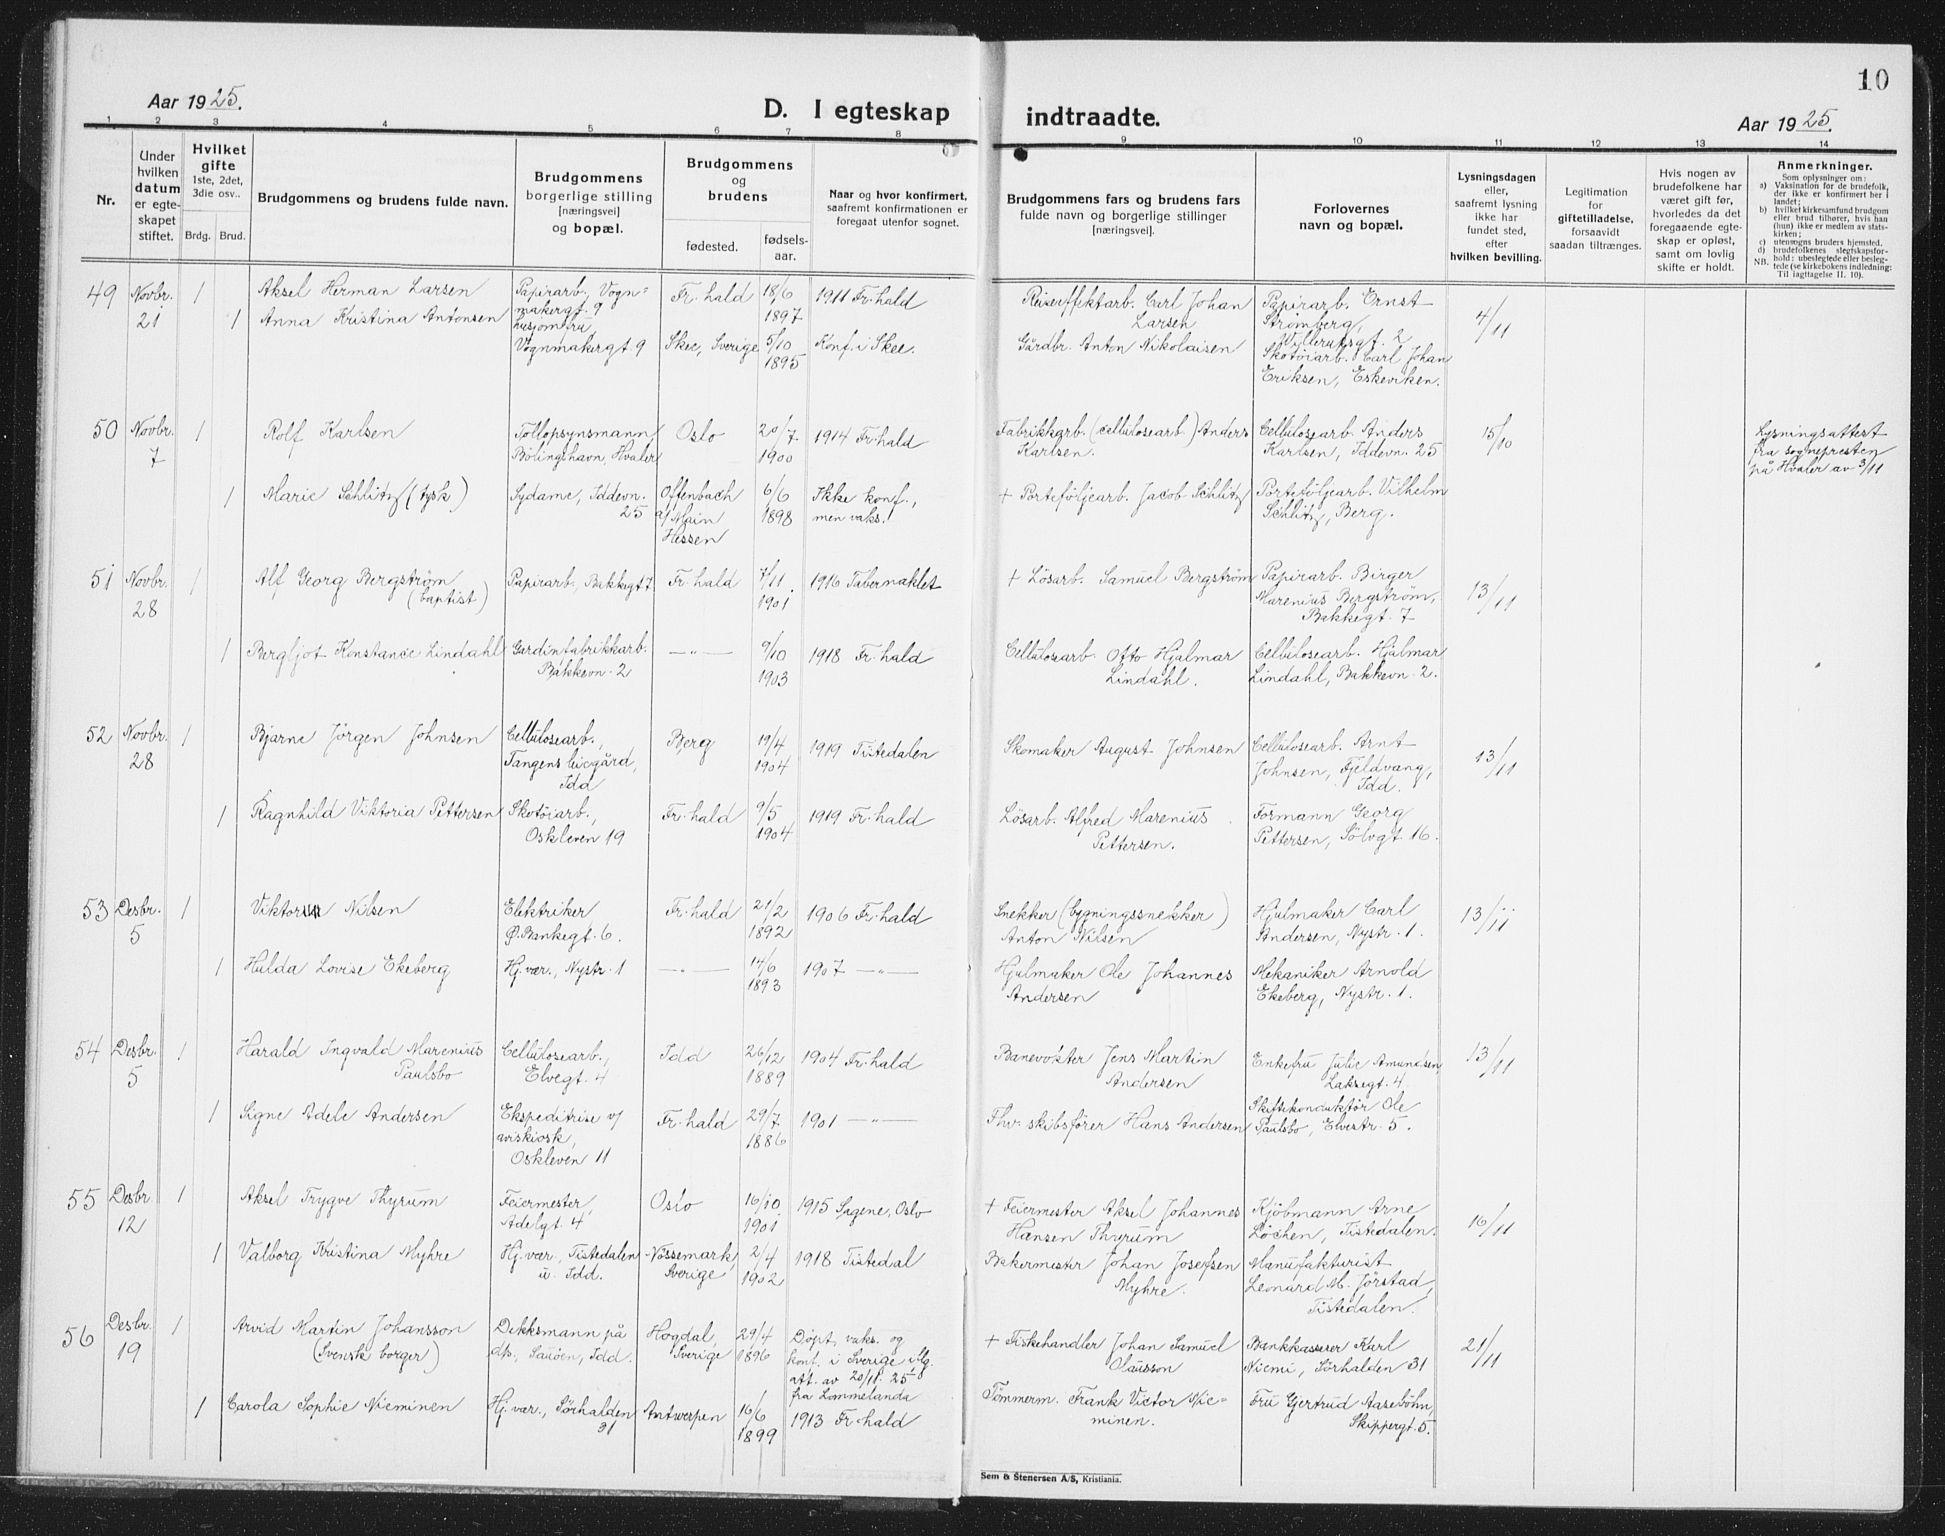 10
Aar 1925.
D. I egteskap
indtraadte.
Aar 1925.
1 2 3 4 5 6 7 8 9 10 11 12 13 14
Nr.
Under
hvilken
datum
er egte-
skapet
stiftet.
Hvilket
gifte
1ste, 2det,
3die osv..
Brdg. Brud.
Brudgommens og brudens fulde navn.
Brudgommens
borgerlige stilling
[næringsvei]
og bopæl.
Brudgommens
og
brudens
fødested.
fødsels-
aar.
Naar og hvor konfirmert,
saafremt konfirmationen er
foregaat utenfor sognet.
Brudgommens fars og brudens fars
fulde navn og borgerlige stillinger
[næringsvei].
Forlovernes
navn og bopæl.
Lysningsdagen
eller,
saafremt lysning
ikke har
fundet sted,
efter
hvilken bevilling.
Legitimation
for
giftetilladelse,
forsaavidt
saadan tiltrænges.
Hvis nogen av
brudefolkene har
været gift før,
hvorledes da det
foregaaende egte-
skap er opløst,
samt om lovlig
skifte er holdt.
Anmerkninger.
Som oplysninger om:
a) Vaksination for de brudefolk,
der ikke er konfirmert her i
landet;
b) hvilket kirkesamfund brudgom
eller brud tilhører, hvis han
(hun) ikke er medlem av stats-
kirken;
c) utensogns bruders hjemsted.
d) brudefolkenes slegtskapsfor-
hold: ubeslegtede eller besleg-
NB. tede (se kirkebokens indledning:
Til iagttagelse II. 10).
49 Novbr. 21 1 Aksel Herman Larsen
Papirarb., Vogn-
makergt. 9
Fr.hald 18/6 1897 1911 Fr.hald
Reiseeffektarb. Carl Johan
Larsen
Papirarb. Ernst
Strömberg,
gt. 2
4/11
1 Anna Kristina Antonsen
husjomfru
Vognmakergt. 9
Skee, Sverige 5/10 1895 Konf. i Skee.
Gårdbr. Anton Nikolaisen
Skotöiarb. Carl Johan
Eriksen, Eskeviken.
50 Novbr. 7 1 Rolf Karlsen
Tollopsynsmann,
Bölingshavn, Hvaler
Oslo 20/7 1900 1914 Fr.hald
Fabrikkarb. (cellulosearb.) Anders
Karlsen.
Cellulosearb. Anders
Karlsen, Iddevn. 25
15/10
Lysningsattest
fra sognepresten
på Hvaler av 3/11
1 Marie Schlitz (tysk)
Sydame, Iddevn.
25
Offenbach
a/ Main
Hessen
6/6 1898
Ikke konf.,
men vaks.!
+ Porteföljearb. Jacob Schlitz
Porteföljearb. Vilhelm
Schlitz, Berg.
51 Novbr. 28 1 Alf Georg Bergström
(baptist)
Papirarb., Bakkegt 7.
Fr.hald 7/11 1901 1916 Tabernaklet
+ Lösarb. Samuel Bergström
Papirarb. Birger
Marenius Bergström,
Bakkegt. 7
13/11
1 Bergljot Konstance Lindahl
Gardinfabrikkarb.
Bakkevn. 2
—"— 9/10 1903 1918 Fr.hald
Cellulosearb. Otto Hjalmar
Lindahl.
Cellulosearb. Hjalmar
Lindahl, Bakkevn. 2.
52 Novbr. 28 1 Bjarne Jörgen Johnsen
Cellulosearb.,
Tangens bisgård,
Idd
Berg 19/4 1904 1919 Tistedalen
Skomaker August Johnsen
Cellulosearb. Arnt
Johnsen, Fjeldvang,
Idd.
13/11
1 Ragnhild Viktoria Pettersen
Skotöiarb.,
Oskleven 19
Fr.hald 9/5 1904 1919 Fr.hald
Lösarb. Alfred Marenius
Pettersen.
Formann Georg
Pettersen, Sölvgt. 16.
53 Desbr. 5 1 Viktor Nilsen
Elektriker
Ø.Bankegt. 6.
Fr.hald 21/2 1892 1906 Fr.hald
Snekker (bygningssnekker)
Anton Nilsen
Hjulmaker Carl
Andersen, Nystr. 1.
13/11
1 Hulda Lovise Ekeberg
Hj.vær., Nystr. 1
—"— 14/6 1893 1907 —"—
Hjulmaker Ole Johannes
Andersen
Mekaniker Arnold
Ekeberg, Nystr. 1.
54 Desbr. 5 1 Harald Ingvald Marenius
Paulsbo
Cellulosearb.,
Elvegt. 4
Idd 26/12 1889 1904 Fr.hald
Banevokter Jens Martin
Andersen
Enkefru Julie Amundsen,
Laksegt. 4
13/11
1 Signe Adele Andersen
Ekspeditrise v/
aviskiosk,
Oskleven 11
Fr.hald 29/7 1886 1901 —"—
Fhv. skibsfører Hans Andersen
Skiftekonduktör Ole
Paulsbo, Elvestr. 5.
55 Desbr. 12 1 Aksel Trygve Thyrum
Feiermester,
Adelgt. 4
Oslo 16/10 1901 1915 Sagene, Oslo
+ Feiermester Aksel Johannes
Hansen Thyrum
Kjöbmann Arne
Løchen, Tistedalen.
16/11
1 Valborg Kristina Myhre
Hj.vær., Tistedalen
u. Idd.
Nössemark,
Sverige
2/4 1902 1918 Tistedal
Bakermester Johan Josefsen
Myhre.
Manufakturist
Leonard M. Jörstad,
Tistedalen.
56 Desbr. 19 1 Arvid Martin Johansson
(Svensk borger)
Dekksmann på
ds., Sauöen, Idd.
Hogdal,
Sverige
29/4 1896
Döpt, vaks. og
konf. i Sverige iflg.
att. av 20/11. 25
fra Lommelanda
+ Fiskehandler Johan Samuel
Olausson
Bankkasserer Karl
Niemi, Sörhalden 31
21/11
1 Carola Sophie Nieminen
Hj.vær., Sörhalden
31
Antwerpen 16/6 1899 1913 Fr.hald
Tömmerm. Frank Victor Nie-
minen.
Fru Gjertrud Aasebøhn,
Skippergt. 5.
Sem & Stenersen A/S, Kristiania.